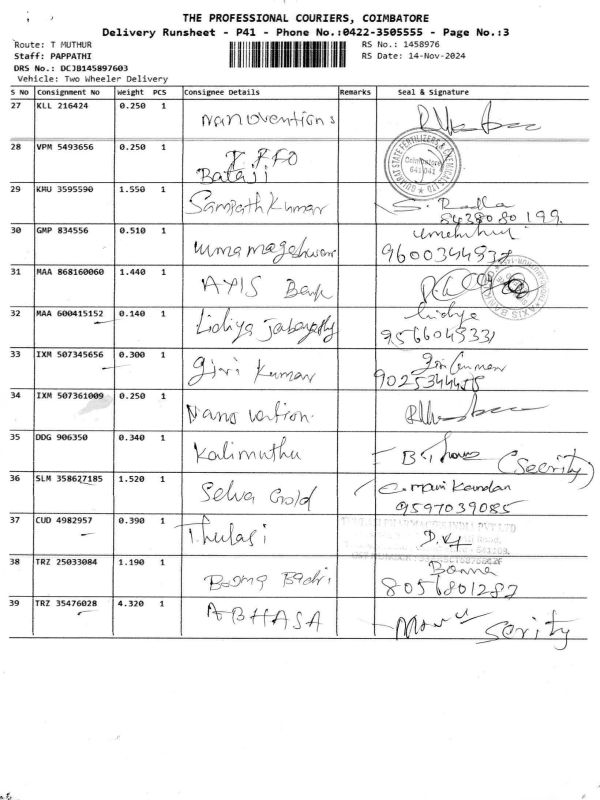 THE PROFESSIONAL COURIERS, COIMBATORE
Delivery Runsheet - P41 - Phone No.:0422-3505555 - Page No.:3
Route: T MUTHUR RS No.: 1458976
Staff: PAPPATHI RS Date: 14-Nov-2024
DRS No.: DCJB145897603
Vehicle: Two Wheeler Delivery
S No Consignment No Weight PCS Consignee Details Remarks Seal & signature
27 KLL 216424 0.250 1 Nanoventions
28 VPM 5493656 0.250 1
Balaji
GUJARAT STATE FERTILIZERS & CHEMICALS LTD
Coimbatore
641 041
29 KMU 3595590 1.550 1 Sampath Kumar S. Radha
8438080199.
30 GMP 834556 0.510 1 uma mageshwari
9600344937
31 MAA 868160060 1.440 1 AXIS Bank
AXIS BANK
32 MAA 600415152 0.140 1 Lidiya Lidiya
9566045331
33 IXM 507345656 0.300 1 Giri Kumar
9025344455
34 IXM 507361009 0.250 1 Nano vention
35 DDG 906350 0.340 1 Kalimuthu (Secrity)
36 SLM 358627185 1.520 1 Selva Gold
9597039085
37 CUD 4982957 0.390 1 Thulasi
PHARMACIES INDIA PVT LTD
38 TRZ 25033084 1.190 1 Badri
8056801282
39 TRZ 35476028 4.320 1 ABHASA Serity